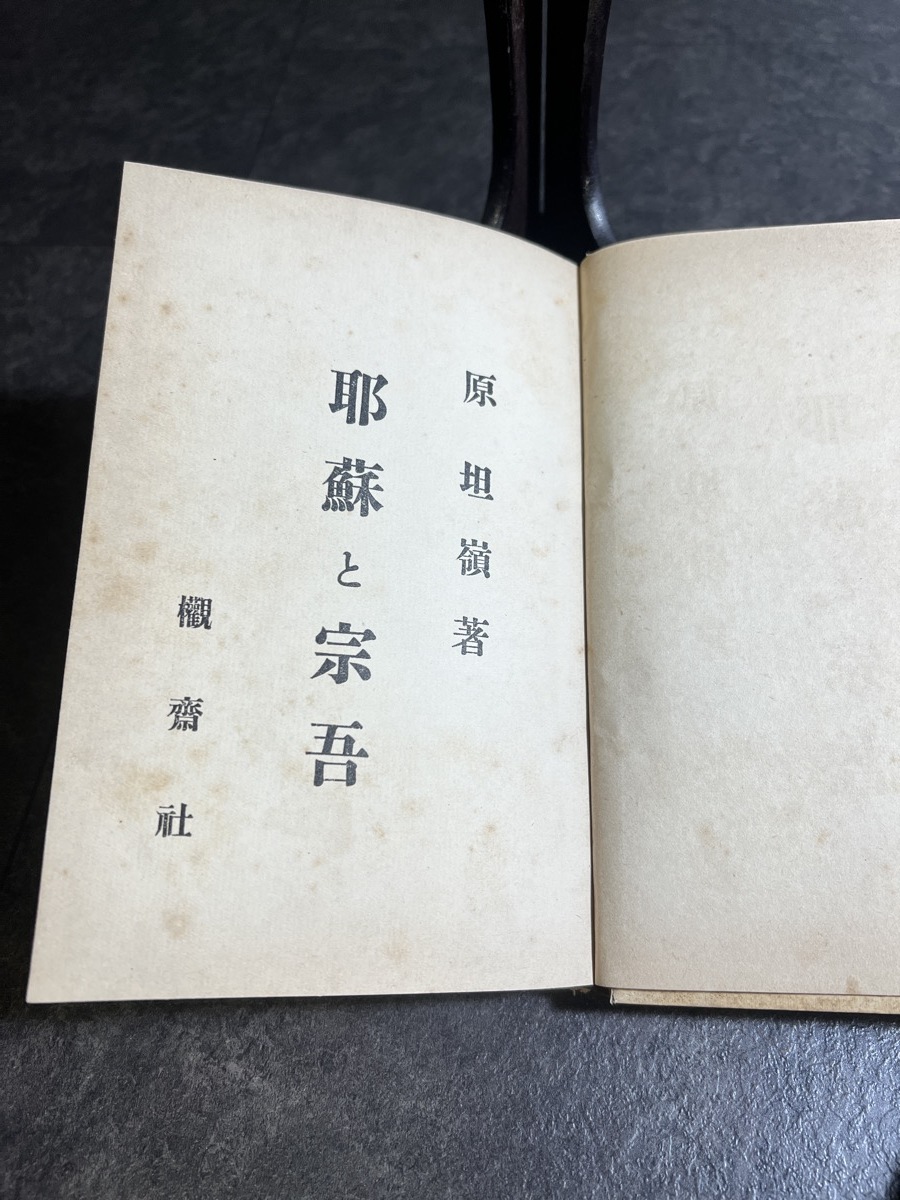 原坦嶺著
耶蘇と宗吾
欟齋社